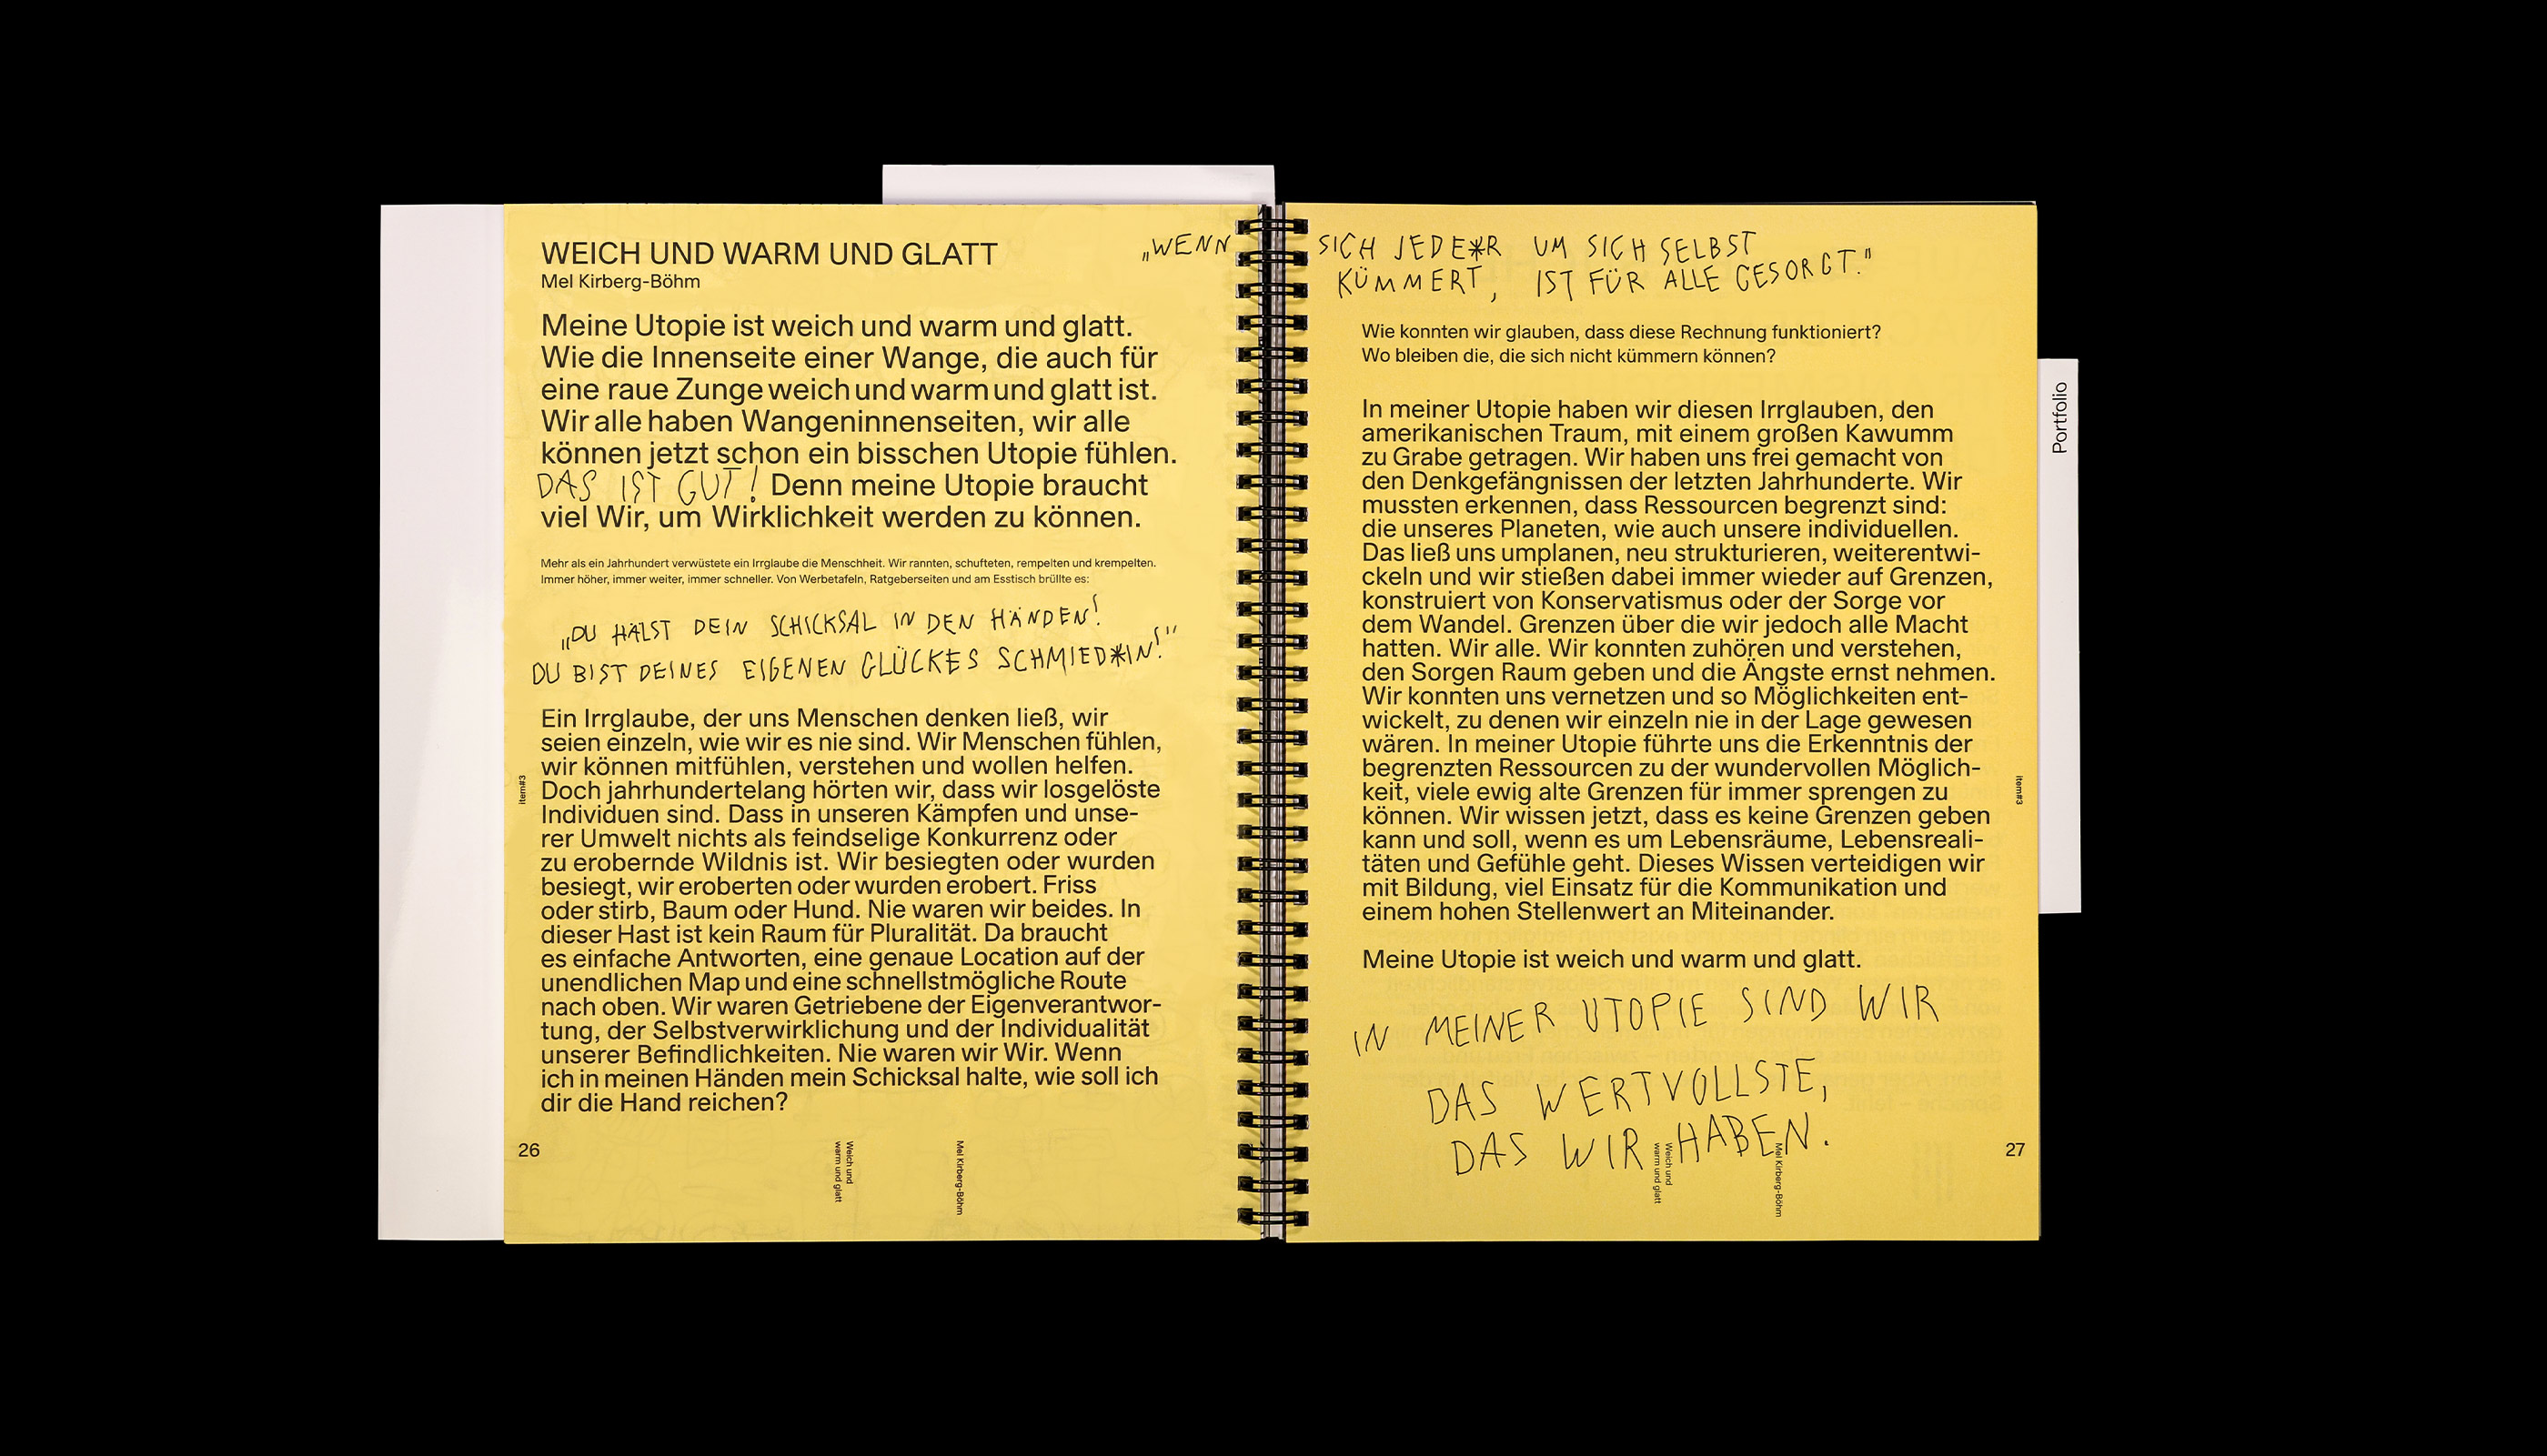 WEICH UND WARM UND GLATT
Mel Kirberg-Böhm
Meine Utopie ist weich und warm und glatt.
Wie die Innenseite einer Wange, die auch für
eine raue Zunge weich und warm und glatt ist.
Wir alle haben Wangeninnenseiten, wir alle
können jetzt schon ein bisschen Utopie fühlen.
DAS IST GUT! Denn meine Utopie braucht
viel Wir, um Wirklichkeit werden zu können.
Mehr als ein Jahrhundert verwüstete ein Irrglaube die Menschheit. Wir rannten, schufteten, rempelten und krempelten.
Immer höher, immer weiter, immer schneller. Von Werbetafeln, Ratgeberseiten und am Esstisch brüllte es:
„DU HÄLST DEIN SCHICKSAL IN DEN HÄNDEN!
DU BIST DEINES EIGENEN GLÜCKES SCHMIED*IN!"
Ein Irrglaube, der uns Menschen denken ließ, wir
seien einzeln, wie wir es nie sind. Wir Menschen fühlen,
wir können mitfühlen, verstehen und wollen helfen.
Doch jahrhundertelang hörten wir, dass wir losgelöste
Individuen sind. Dass in unseren Kämpfen und unse-
rer Umwelt nichts als feindselige Konkurrenz oder
zu erobernde Wildnis ist. Wir besiegten oder wurden
besiegt, wir eroberten oder wurden erobert. Friss
oder stirb, Baum oder Hund. Nie waren wir beides. In
dieser Hast ist kein Raum für Pluralität. Da braucht
es einfache Antworten, eine genaue Location auf der
unendlichen Map und eine schnellstmögliche Route
nach oben. Wir waren Getriebene der Eigenverantwor-
tung, der Selbstverwirklichung und der Individualität
unserer Befindlichkeiten. Nie waren wir Wir. Wenn
ich in meinen Händen mein Schicksal halte, wie soll ich
dir die Hand reichen?
item#3
26
Weich und
warm und glatt
Mel Kirberg-Böhm
„WENN SICH JEDE*R UM SICH SELBST
KÜMMERT, IST FÜR ALLE GESORGT."
Wie konnten wir glauben, dass diese Rechnung funktioniert?
Wo bleiben die, die sich nicht kümmern können?
In meiner Utopie haben wir diesen Irrglauben, den
amerikanischen Traum, mit einem großen Kawumm
zu Grabe getragen. Wir haben uns frei gemacht von
den Denkgefängnissen der letzten Jahrhunderte. Wir
mussten erkennen, dass Ressourcen begrenzt sind:
die unseres Planeten, wie auch unsere individuellen.
Das ließ uns umplanen, neu strukturieren, weiterentwi-
ckeln und wir stießen dabei immer wieder auf Grenzen,
konstruiert von Konservatismus oder der Sorge vor
dem Wandel. Grenzen über die wir jedoch alle Macht
hatten. Wir alle. Wir konnten zuhören und verstehen,
den Sorgen Raum geben und die Ängste ernst nehmen.
Wir konnten uns vernetzen und so Möglichkeiten ent-
wickelt, zu denen wir einzeln nie in der Lage gewesen
wären. In meiner Utopie führte uns die Erkenntnis der
begrenzten Ressourcen zu der wundervollen Möglich-
keit, viele ewig alte Grenzen für immer sprengen zu
können. Wir wissen jetzt, dass es keine Grenzen geben
kann und soll, wenn es um Lebensräume, Lebensreali-
täten und Gefühle geht. Dieses Wissen verteidigen wir
mit Bildung, viel Einsatz für die Kommunikation und
einem hohen Stellenwert an Miteinander.
Meine Utopie ist weich und warm und glatt.
IN MEINER UTOPIE SIND WIR
DAS WERTVOLLSTE,
DAS WIR HABEN.
item#3
27
Weich und
warm und glatt
Mel Kirberg-Böhm
Portfolio